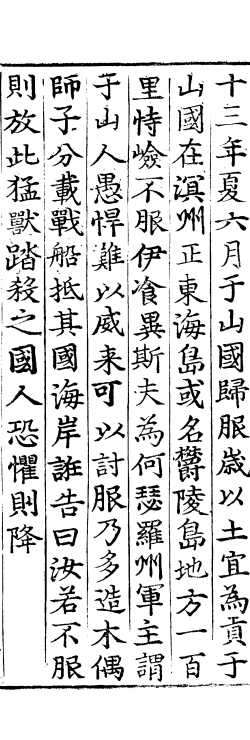 十三年夏六月于山國歸服歲以土宜為貢于
山國在溟州正東海島或名欝陵島地方一百
里恃嶮不服伊飡異斯夫為何瑟羅州軍主謂
于山人愚悍難以威来可以計服乃多造木偶
師子分載戰船抵其國海岸誑告曰汝若不服
則放此猛獸踏殺之國人恐懼則降